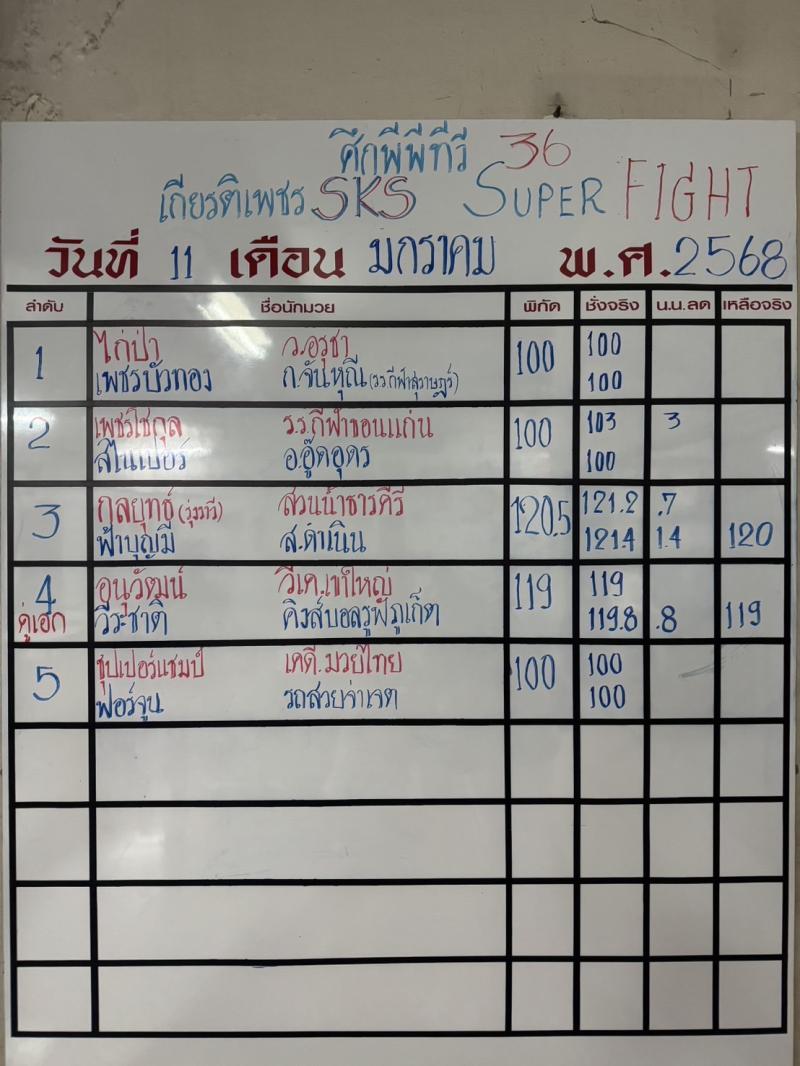 ศึกพีพีทีวี 36
เกียรติเพชร SKS SUPER FIGHT
วันที่ 11 เดือน มกราคม พ.ศ.2568
ลำดับ ชื่อนักมวย พิกัด ชั่งจริง น.น.ลด เหลือจริง
1 ไก่ป่า ว.อรุชา 100 100
เพชรบัวทอง ก.จันหุณี (รร.กีฬาสุราษฎร์) 100
2 เพชรโชกุล ร.ร.กีฬาขอนแก่น 100 103 3
สไนเปอร์ อ.อู๊ดอุดร 100
3 กุลยุทธ์ (รุ่งราวี) สวนน้ำธารคีรี 120.5 121.2 .7
ฟ้าบุญมี ส.ดำเนิน 121.4 1.4 120
4 อนุวัฒน์ วีเค.เขาใหญ่ 119 119
คู่เอก วีระชาติ คิงส์บอลรูฟภูเก็ต 119.8 .8 119
5 ซุปเปอร์แชมป์ เคดี.มวยไทย 100 100
ฟอร์จูน รถสวยจ่าเจต 100